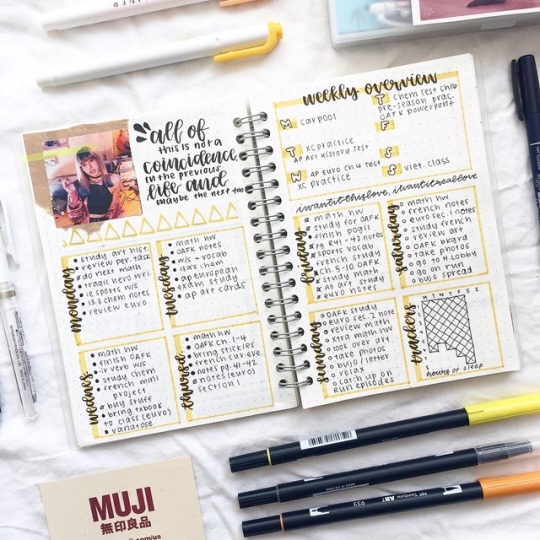 all of
this is not a
coincidence
in the previous
life and
maybe the next too
monday
study art hist.
review per. task
do next math
tragic hero wri
ie sports w/s
13.3 chem notes
review euro
tuesday
math hw
OAFK notes
w/s + vocab
13.3 chem
ap european
exam study
ap art cards
math hw
finish OAFK
ir verb w/s
study chem
french mini
project
buy stuff
bring txboos
to class (euro)
thursd.
math hw
OAFK ch. 1-4
bring stickies
french cur. eve.
notes pg. 41-42
notes (euro)
section 1
weekly overview
M carpool
T xc practice
AP Art History Test
W AP Euro Ch. 4 Test
xc practice
T Chem Test Ch16
pre-season prac.
OAFK powerpoint
F
S
S viet. class
i want it this love, i want it real love
friday
math hw
study for OAFK
finish pogil
pg. RH1-42 notes
sports vocab
french study
ch. 5-10 OAFK
study math
ap art study
euro notes
saturday
math hw
french notes
euro sec. 1 notes
study french
review art
OAFK bkgrd
take photos
go to H. lobby
go on run
bujo spread
sunday
OAFK study
euro sec. 2 note
review math
xtra math hw
look over art
take photos
bujo / letter
relax
catch up on
run episodes
trackers
hours of sleep
MUJI
無印良品
933
Tombow ABT